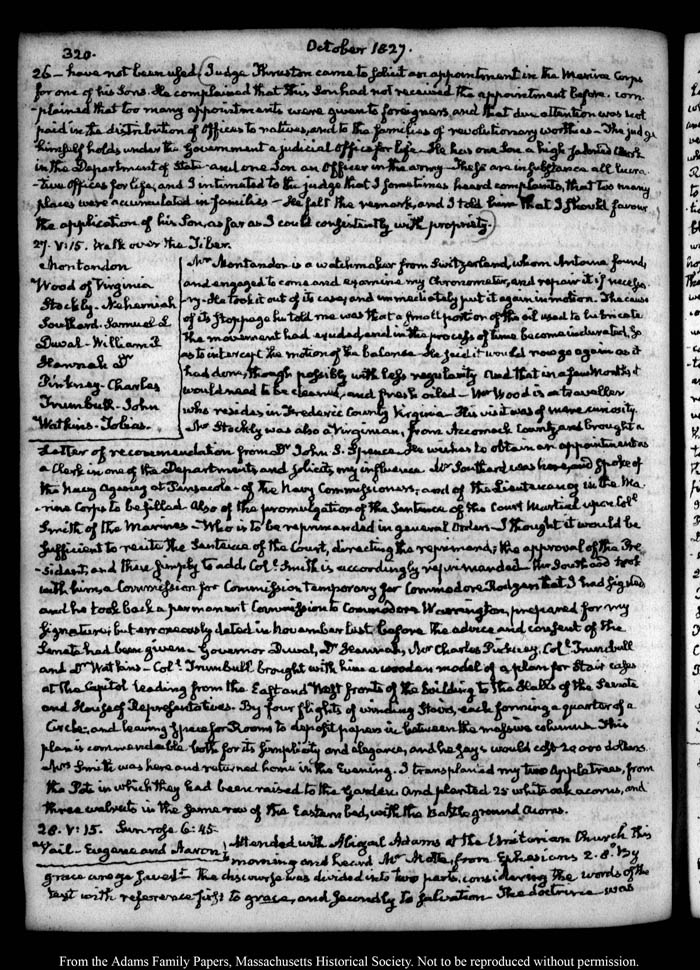 320.
October 1827.
26 — have not been used. (Judge Thruston came to solicit an appointment in the Marine Corps
for one of his Sons. He complained that this Son had not received the appointment before. com-
-plained that too many appointments were given to foreigners, and that due attention was not
paid in the distribution of Offices to natives, and to the families of revolutionary worthies — The judge
himself holds under the Government a judicial office for life. He has one Son a high salaried Clerk
in the Department of State and one Son an Officer in the army — These are in substance all lucra-
-tive offices for life, and I intimated to the judge that I sometimes heard complaints, that too many
places were accumulated in families — He felt the remark, and I told him that I should favour
the application of his Son, as far as I could consistently with propriety.)
27. V:15. Walk over the Tiber.
Montandon
Wood of Virginia
Stockly - Nehemiah
Southard - Samuel L
Duval - William P.
Hannah Dr
Pinkney - Charles
Trumbull - John
Watkins - Tobias.
Mr Montandon is a watchmaker from Switzerland, whom Antoine found,
and engaged to come and examine my Chronometer, and repair it if necessa-
ry. He took it out of its case, and immediately put it again in motion. The cause
of its stoppage he told me was that a small portion of the oil used to lubricate
the movement had exuded, and in the process of time become indurated, so
as to intercept the motion of the balance. He said it would now go again as it
had done, though possibly with less regularity and that in a few Months it
would need to be cleaned, and fresh oiled — Mr Wood is a traveller
who resides in Frederic County Virginia — His visit was of mere curiosity.
Mr Stockly was also a Virginian, from Accomack County and brought a
Letter of recommendation from Dr John S. Spence. He wishes to obtain an appointment as
a Clerk in one of the Departments, and solicits my influence. Mr Southard was here, and spoke of
the Navy Agency at Pensacola — of the Navy Commissioners, and of the Lieutenancy in the Ma-
-rine Corps to be filled. Also of the promulgation of the Sentence of the Court Martial upon Col.
Smith of the Marines — Who is to be reprimanded in general Orders — I thought it would be
sufficient to recite the Sentence of the Court, directing the reprimand; the approval of the Pre-
-sident, and then simply to add Col. Smith is accordingly reprimanded — Mr Southard took
with him, a Commission for Commission temporary for Commodore Rodgers that I had signed
and he took back a permanent Commission to Commodore Warrington, prepared for my
signature; but erroneously dated in November last, before the advice and consent of the
Senate had been given — Governor Duval, Dr Hannah, Mr Charles Pinkney, Col. Trumbull
and Dr Watkins — Col. Trumbull brought with him a wooden model of a plan for Stair cases
at the Capitol leading from the East and West fronts of the building to the Halls of the Senate
and House of Representatives. By four flights of winding Stairs, each forming a quarter of a
Circle, and leaving space for Rooms to deposit papers in between the massive columns. This
plan is commendable both for its simplicity and elegance, and he says would cost 20 000 dollars.
Mrs Smith was here and returned home in the Evening. I transplanted my two Apple trees, from
the Pots in which they had been raised to the Garden. And planted 25 white oak acorns, and
three walnuts in the same row of the Eastern bed, with the Battle ground Acorns.
28. V:15. Sun rose 6:45.
Vail - Eugene and Aaron
Attended with Abigail Adams at the Unitarian Church this
morning and heard Mr Motte, from Ephesians 2.8. By
grace are ye saved — the discourse was divided into two parts, considering the words of the
text with reference first to grace, and secondly to salvation — The doctrine was
From the Adams Family Papers, Massachusetts Historical Society. Not to be reproduced without permission.